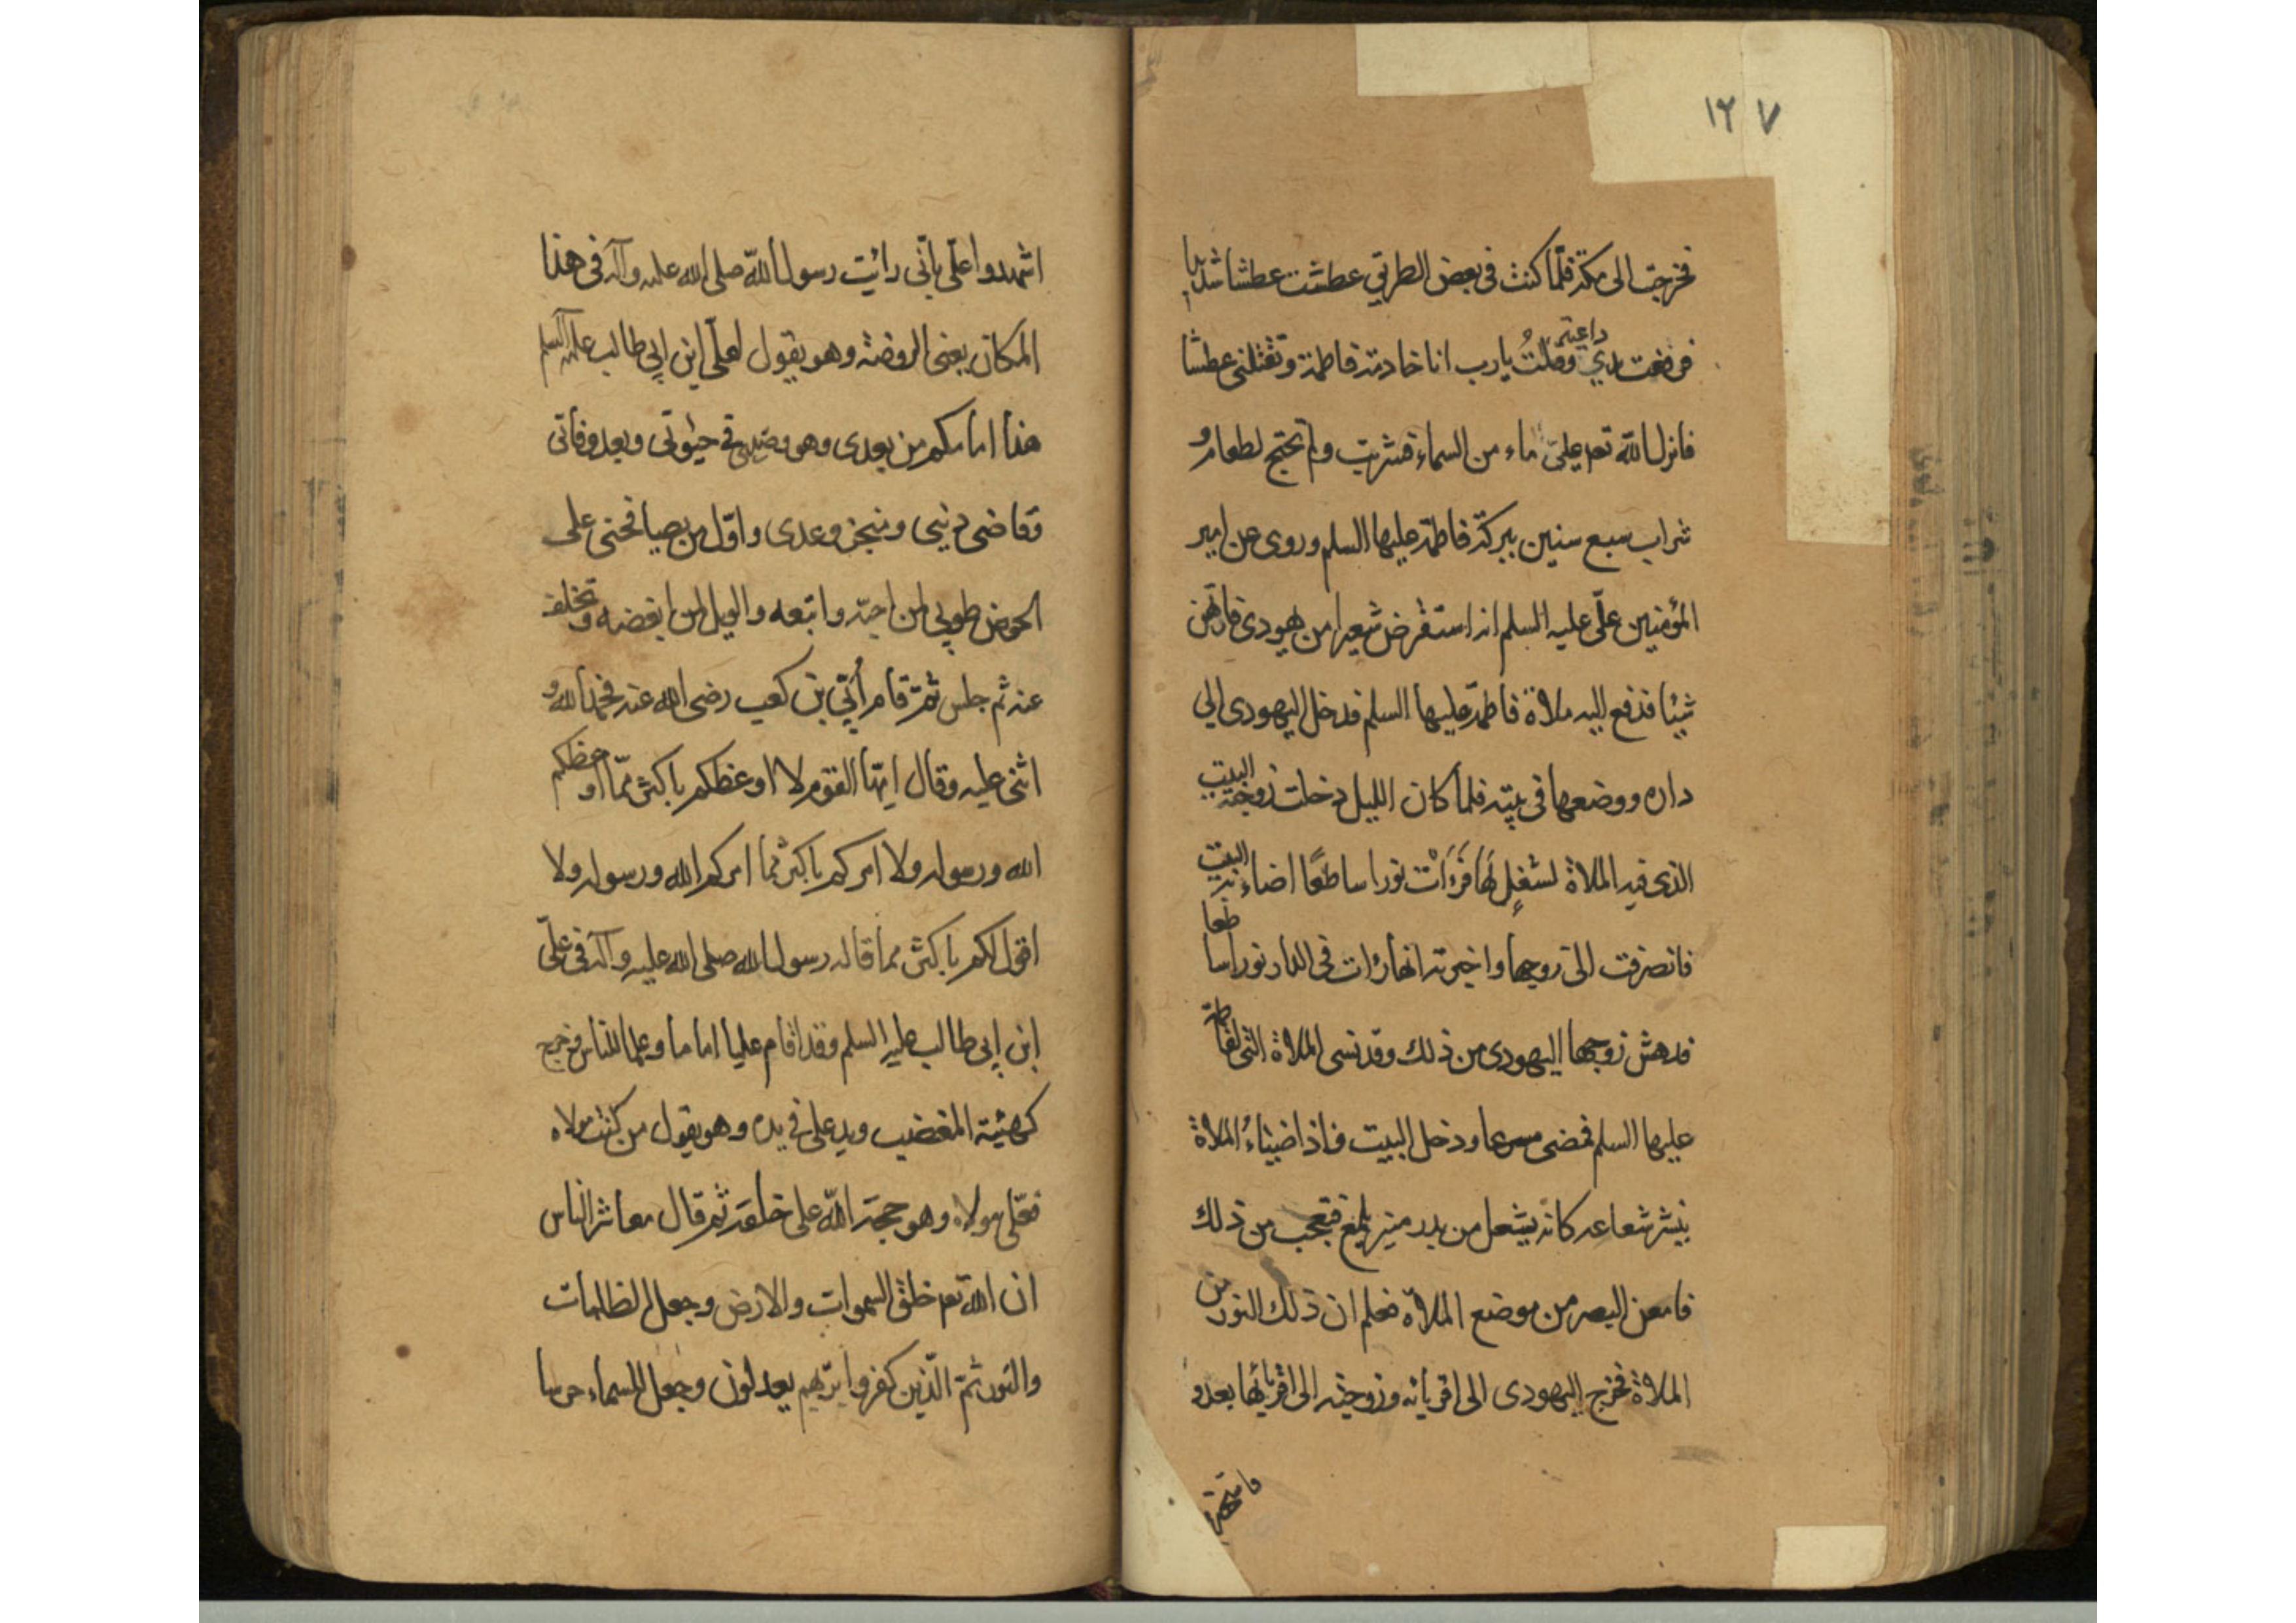 ١٢٧
فخرجت الى مكة فلما كنت فى بعض الطريق عطشت عطشا شديدا
فرفعت يدي داعية وقلتُ يا رب انا خادمة فاطمة وتقتلنى عطشا
فانزل الله تعه علىّ ماء من السماء فشربت ولم تحتج لطعام و
شراب سبع سنين ببركة فاطمة عليها السلم وروى عن امير
المؤمنين علّى عليه السلم انه استقرض شعيرا من يهودى فارتهن
شيئا فدفع اليه ملاة فاطمة عليها السلم فدخل اليهودى الى
داره ووضعها فى بيته فلما كان الليل دخلت زوجته البيت
الذى فيه الملاة لشغلٍ لَها فَرَءَاَتْ نورا ساطعًا اضاء به البيت
فانصرفت الى زوجها واخبرته انها رات فى الدار نورا ساطعا
فدهش زوجها اليهودى من ذلك وقد نسى الملاة التى لفاطمة
عليها السلم فمضى مسرعا ودخل البيت فاذا ضياءُ الملاة
ينشر شعاعه كانه يشعل من بدر منير يلمع فتعجب من ذلك
فامعن البصر من موضع الملاة فعلم ان ذلك النور من
الملاة فخرج اليهودى الى اقربائه وزوجته الى اقربائها يعدو
اشهدوا علّى بانّى رايت رسول الله صلى الله عليه وآله فى هذا
المكان يعنى الروضة وهو يقول لعلّى ابن ابى طالب عليه السلم
هذا امامكم من بعدى وهو وصيى فى حيوتى وبعد وفاتى
وقاضى دينى ومنجز وعدى واوّل من يصافحنى على
الحوض طوبى لمن احبّه واتبعه والويل لمن ابغضه وتخلف
عنه ثم جلس ثمّ قام اُبّي بن كعب رضى الله عنه فحمد الله و
اثنى عليه وقال ايّها القوم لا اوعظكم باكثر ممّا اوعظكم
الله ورسوله ولا امركم باكثر مما امركم الله ورسوله ولا
اقول لكم باكثر مما قاله رسول الله صلى الله عليه وآله فى علىّ
ابن ابى طالب عليه السلم وقد اقام عليا اماما وعلما للناس فخرج
كهيئة المغضب ويد على فى يده وهو يقول من كنت مولاه
فعّلى مولاه وهو حجة الله على خلقه ثم قال معاشر الناس
ان الله تعه خلق السموات والارض وجعل الظلمات
والنور ثمّ الّذين كفروا بربهم يعدلون وجعل للسماء حرسا